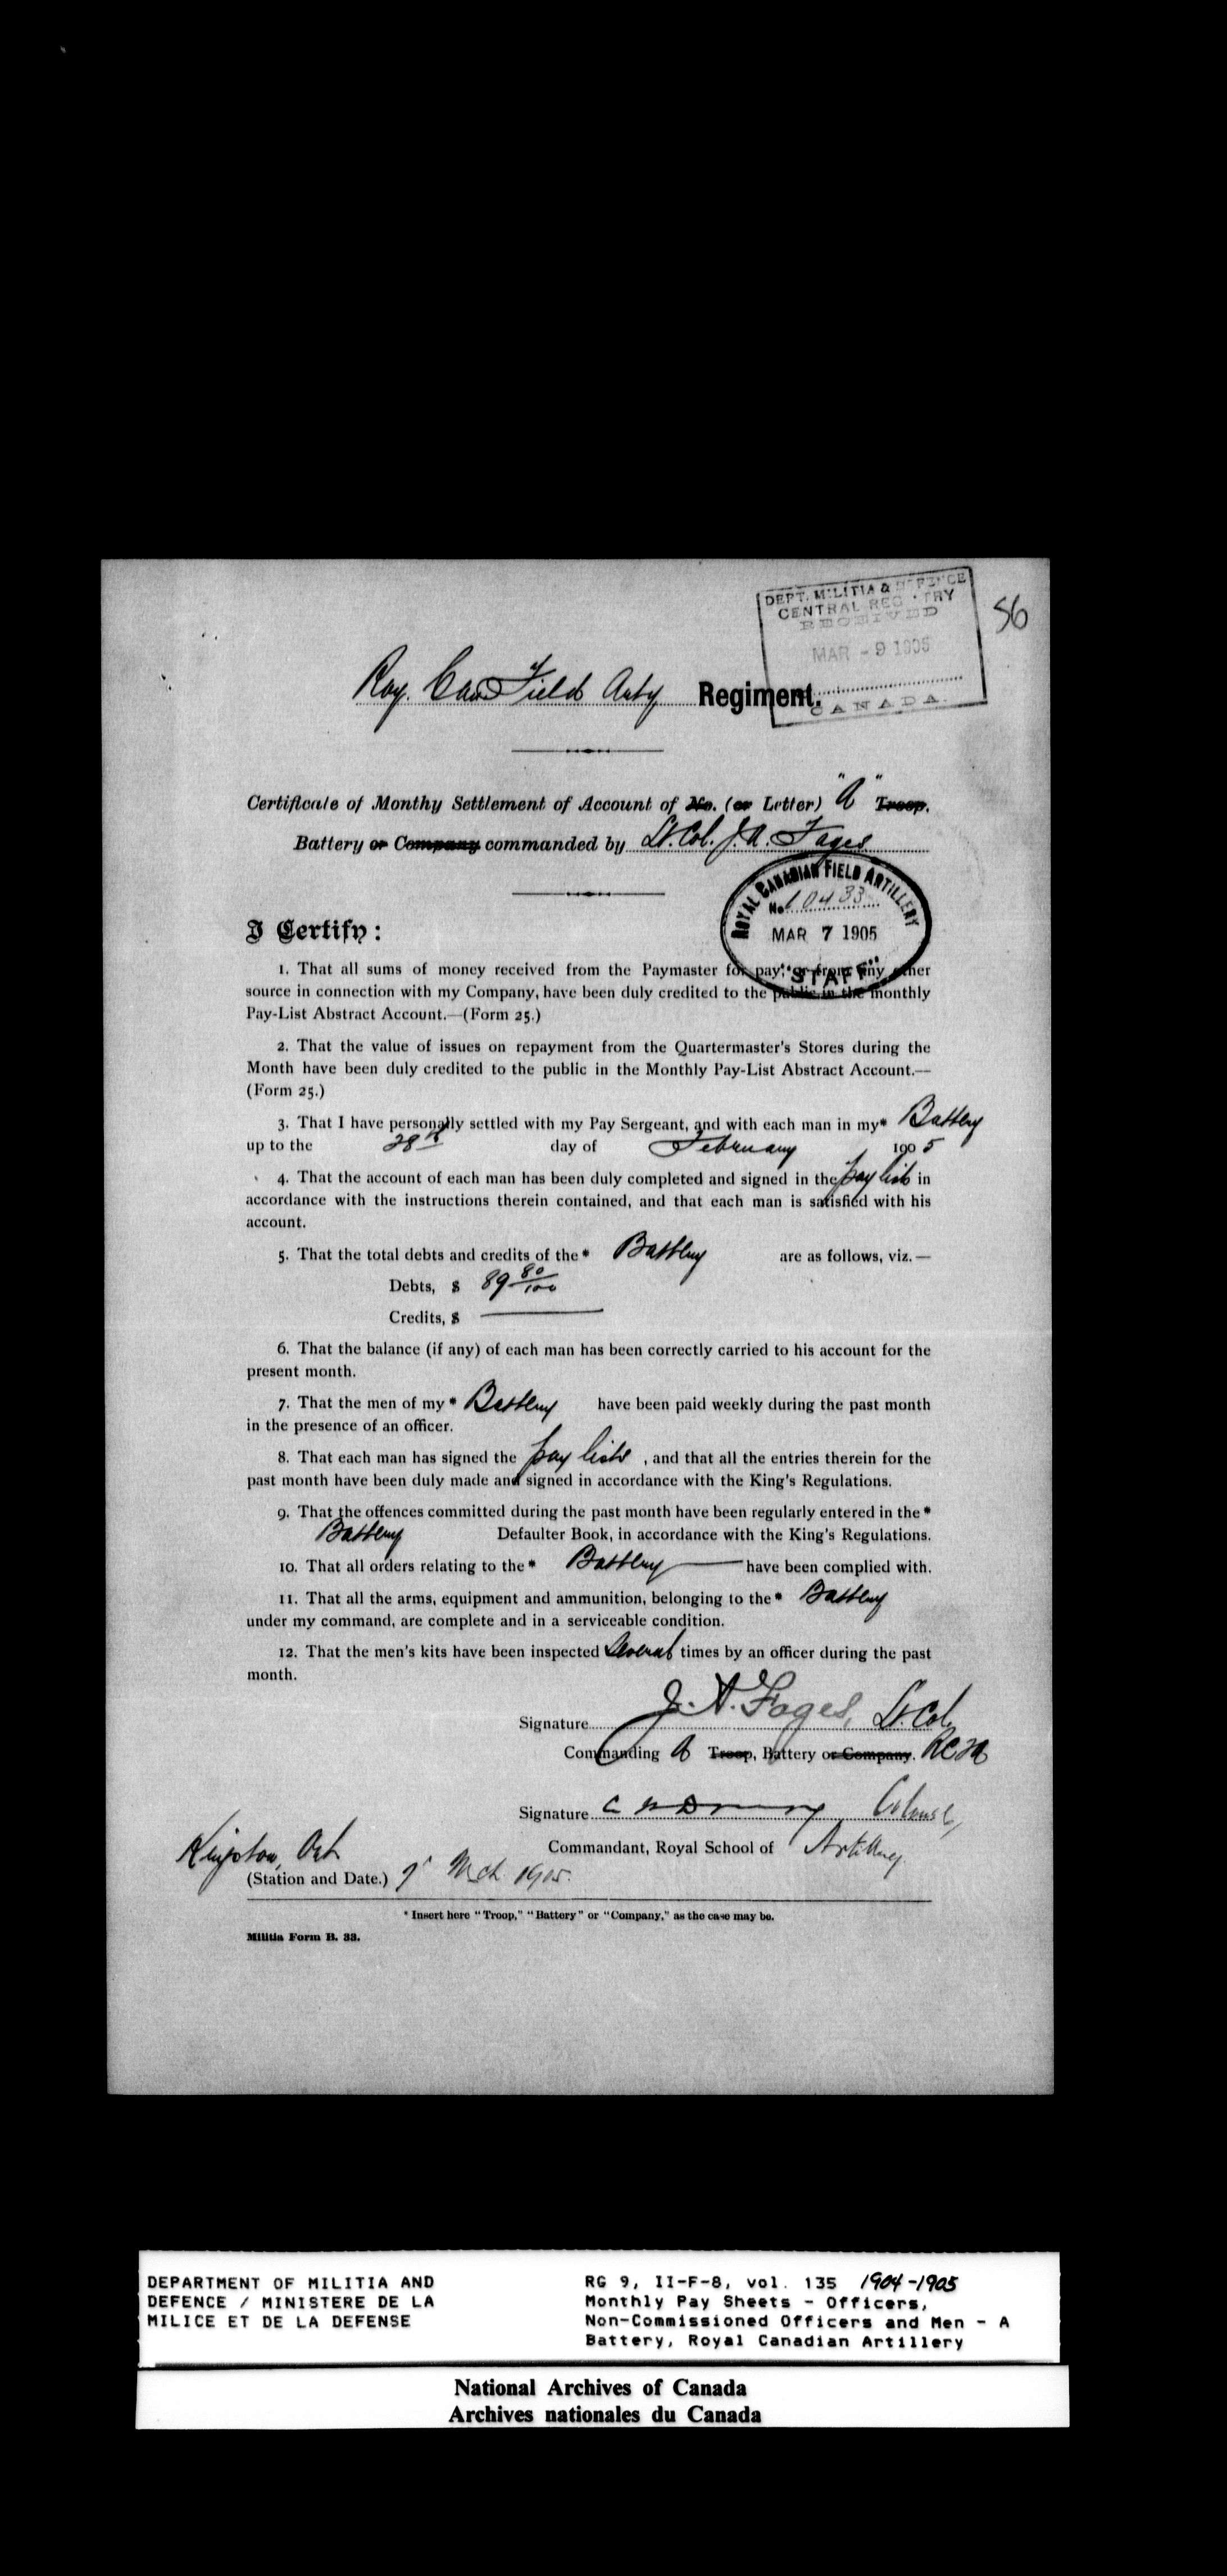 DEPT. MILITIA & DEFENCE
CENTRAL REGISTRY
RECEIVED
MAR - 9 1905
CANADA.
56
Roy. Can Field Arty Regiment.
Certificate of Monthy Settlement of Account of No. (or Letter) "A" Troop.
Battery or Company commanded by Lt. Col. J. A. Fages
ROYAL CANADIAN FIELD ARTILLERY
No. 10433
MAR 7 1905
"STAFF"
I Certify:
1. That all sums of money received from the Paymaster for pay, or from any other
source in connection with my Company, have been duly credited to the public in the monthly
Pay-List Abstract Account.—(Form 25.)
2. That the value of issues on repayment from the Quartermaster's Stores during the
Month have been duly credited to the public in the Monthly Pay-List Abstract Account.—
(Form 25.)
3. That I have personally settled with my Pay Sergeant, and with each man in my* Battery
up to the 28th day of February 1905
4. That the account of each man has been duly completed and signed in the pay list in
accordance with the instructions therein contained, and that each man is satisfied with his
account.
5. That the total debts and credits of the* Battery are as follows, viz.—
Debts, $ 89 80/100
Credits, $ —
6. That the balance (if any) of each man has been correctly carried to his account for the
present month.
7. That the men of my* Battery have been paid weekly during the past month
in the presence of an officer.
8. That each man has signed the pay list, and that all the entries therein for the
past month have been duly made and signed in accordance with the King's Regulations.
9. That the offences committed during the past month have been regularly entered in the*
Battery Defaulter Book, in accordance with the King's Regulations.
10. That all orders relating to the* Battery — have been complied with.
11. That all the arms, equipment and ammunition, belonging to the* Battery
under my command, are complete and in a serviceable condition.
12. That the men's kits have been inspected Several times by an officer during the past
month.
Signature J. A. Fages, Lt. Col.
Commanding A Troop, Battery or Company. RCFA
Signature Colonel,
Commandant, Royal School of Artillery.
Kingston, Ont
(Station and Date.) 7" Mch 1905.
* Insert here "Troop," "Battery" or "Company," as the case may be.
Militia Form B. 33.
DEPARTMENT OF MILITIA AND
DEFENCE / MINISTERE DE LA
MILICE ET DE LA DEFENSE
RG 9, II-F-8, vol. 135 1904-1905
Monthly Pay Sheets - Officers,
Non-Commissioned Officers and Men - A
Battery, Royal Canadian Artillery
National Archives of Canada
Archives nationales du Canada